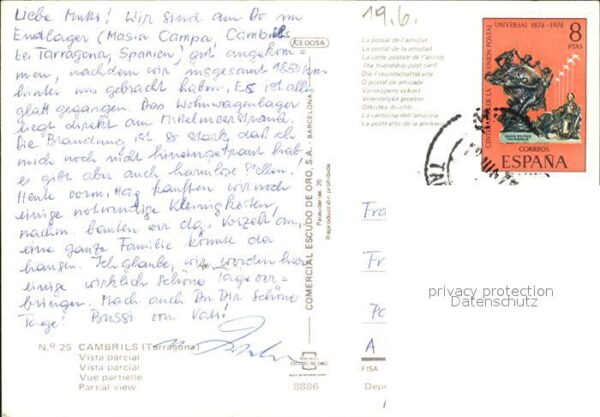 Liebe Mutti! Wir sind am Do im
Endlager (Masia Campa, Cambrils
bei Tarragona, Spanien) gut angekom-
men, nachdem wir insgesamt 1850 km
hinter uns gebracht haben. Es ist alles
glatt gegangen. Das Wohnwagenlager
liegt direkt am Mittelmeerstrand.
Die Brandung ist so stark, daß ich
mich noch nicht hineingetraut hab,
es gibt aber auch harmlose Stellen!
Heute vorm. Mag kauften wir noch
einige notwendige Kleinigkeiten,
nachm. bauten wir das Vorzelt an,
eine ganze Familie könnte da
hausen. Ich glaube, wir werden hier
einige wirklich schöne Tage ver=
bringen. Mach auch Du Dir schöne
Tage! Bussi von Vati!
N.º 25 CAMBRILS (Tarragona)
Vista parcial
Vista parcial
Vue partielle
Partial view
CEDOSA
COMERCIAL ESCUDO DE ORO, S.A. BARCELONA
Palaudarias, 26
Reproducción prohibida
POSTALES
ESCUDO DE ORO
8886
19.6.
La postal de l'amistat
La postal de la amistad
La carte postale de l'amitié
The friendship post card
Die Freundschaftskarte
O postal da amizade
Vänskapens vykort
Vriendelijke groeten
La cartolina dell'amicizia
CENTENARIO DE LA UNION POSTAL UNIVERSAL 1874-1974
8
PTAS
CORREOS
ESPAÑA
TA
JUN
Fra
Fr
Po
A
FISA
Depo
privacy protection
Datenschutz